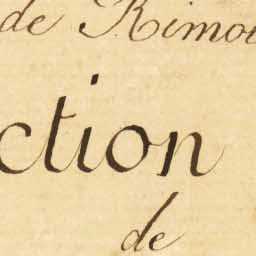 de Rimou
ction
de